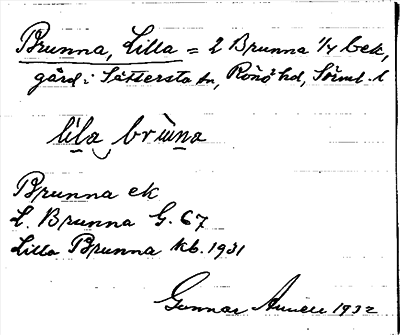 Brunna, Lilla = L Brunna ¼ bek,
gård i Sättersta sn, Rönö hd, Sörml. l
lila bru̇na
Brunna ek
L. Brunna G. 67
Lilla Brunna kb. 1931
Gunnar 1932